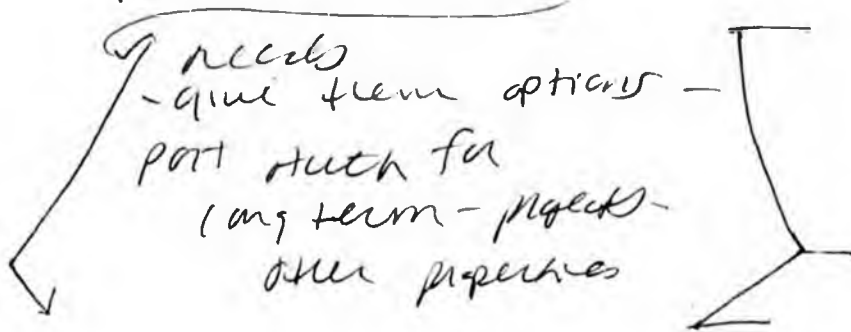 needs
- give them options -
port Auth for
long term - projects -
other properties